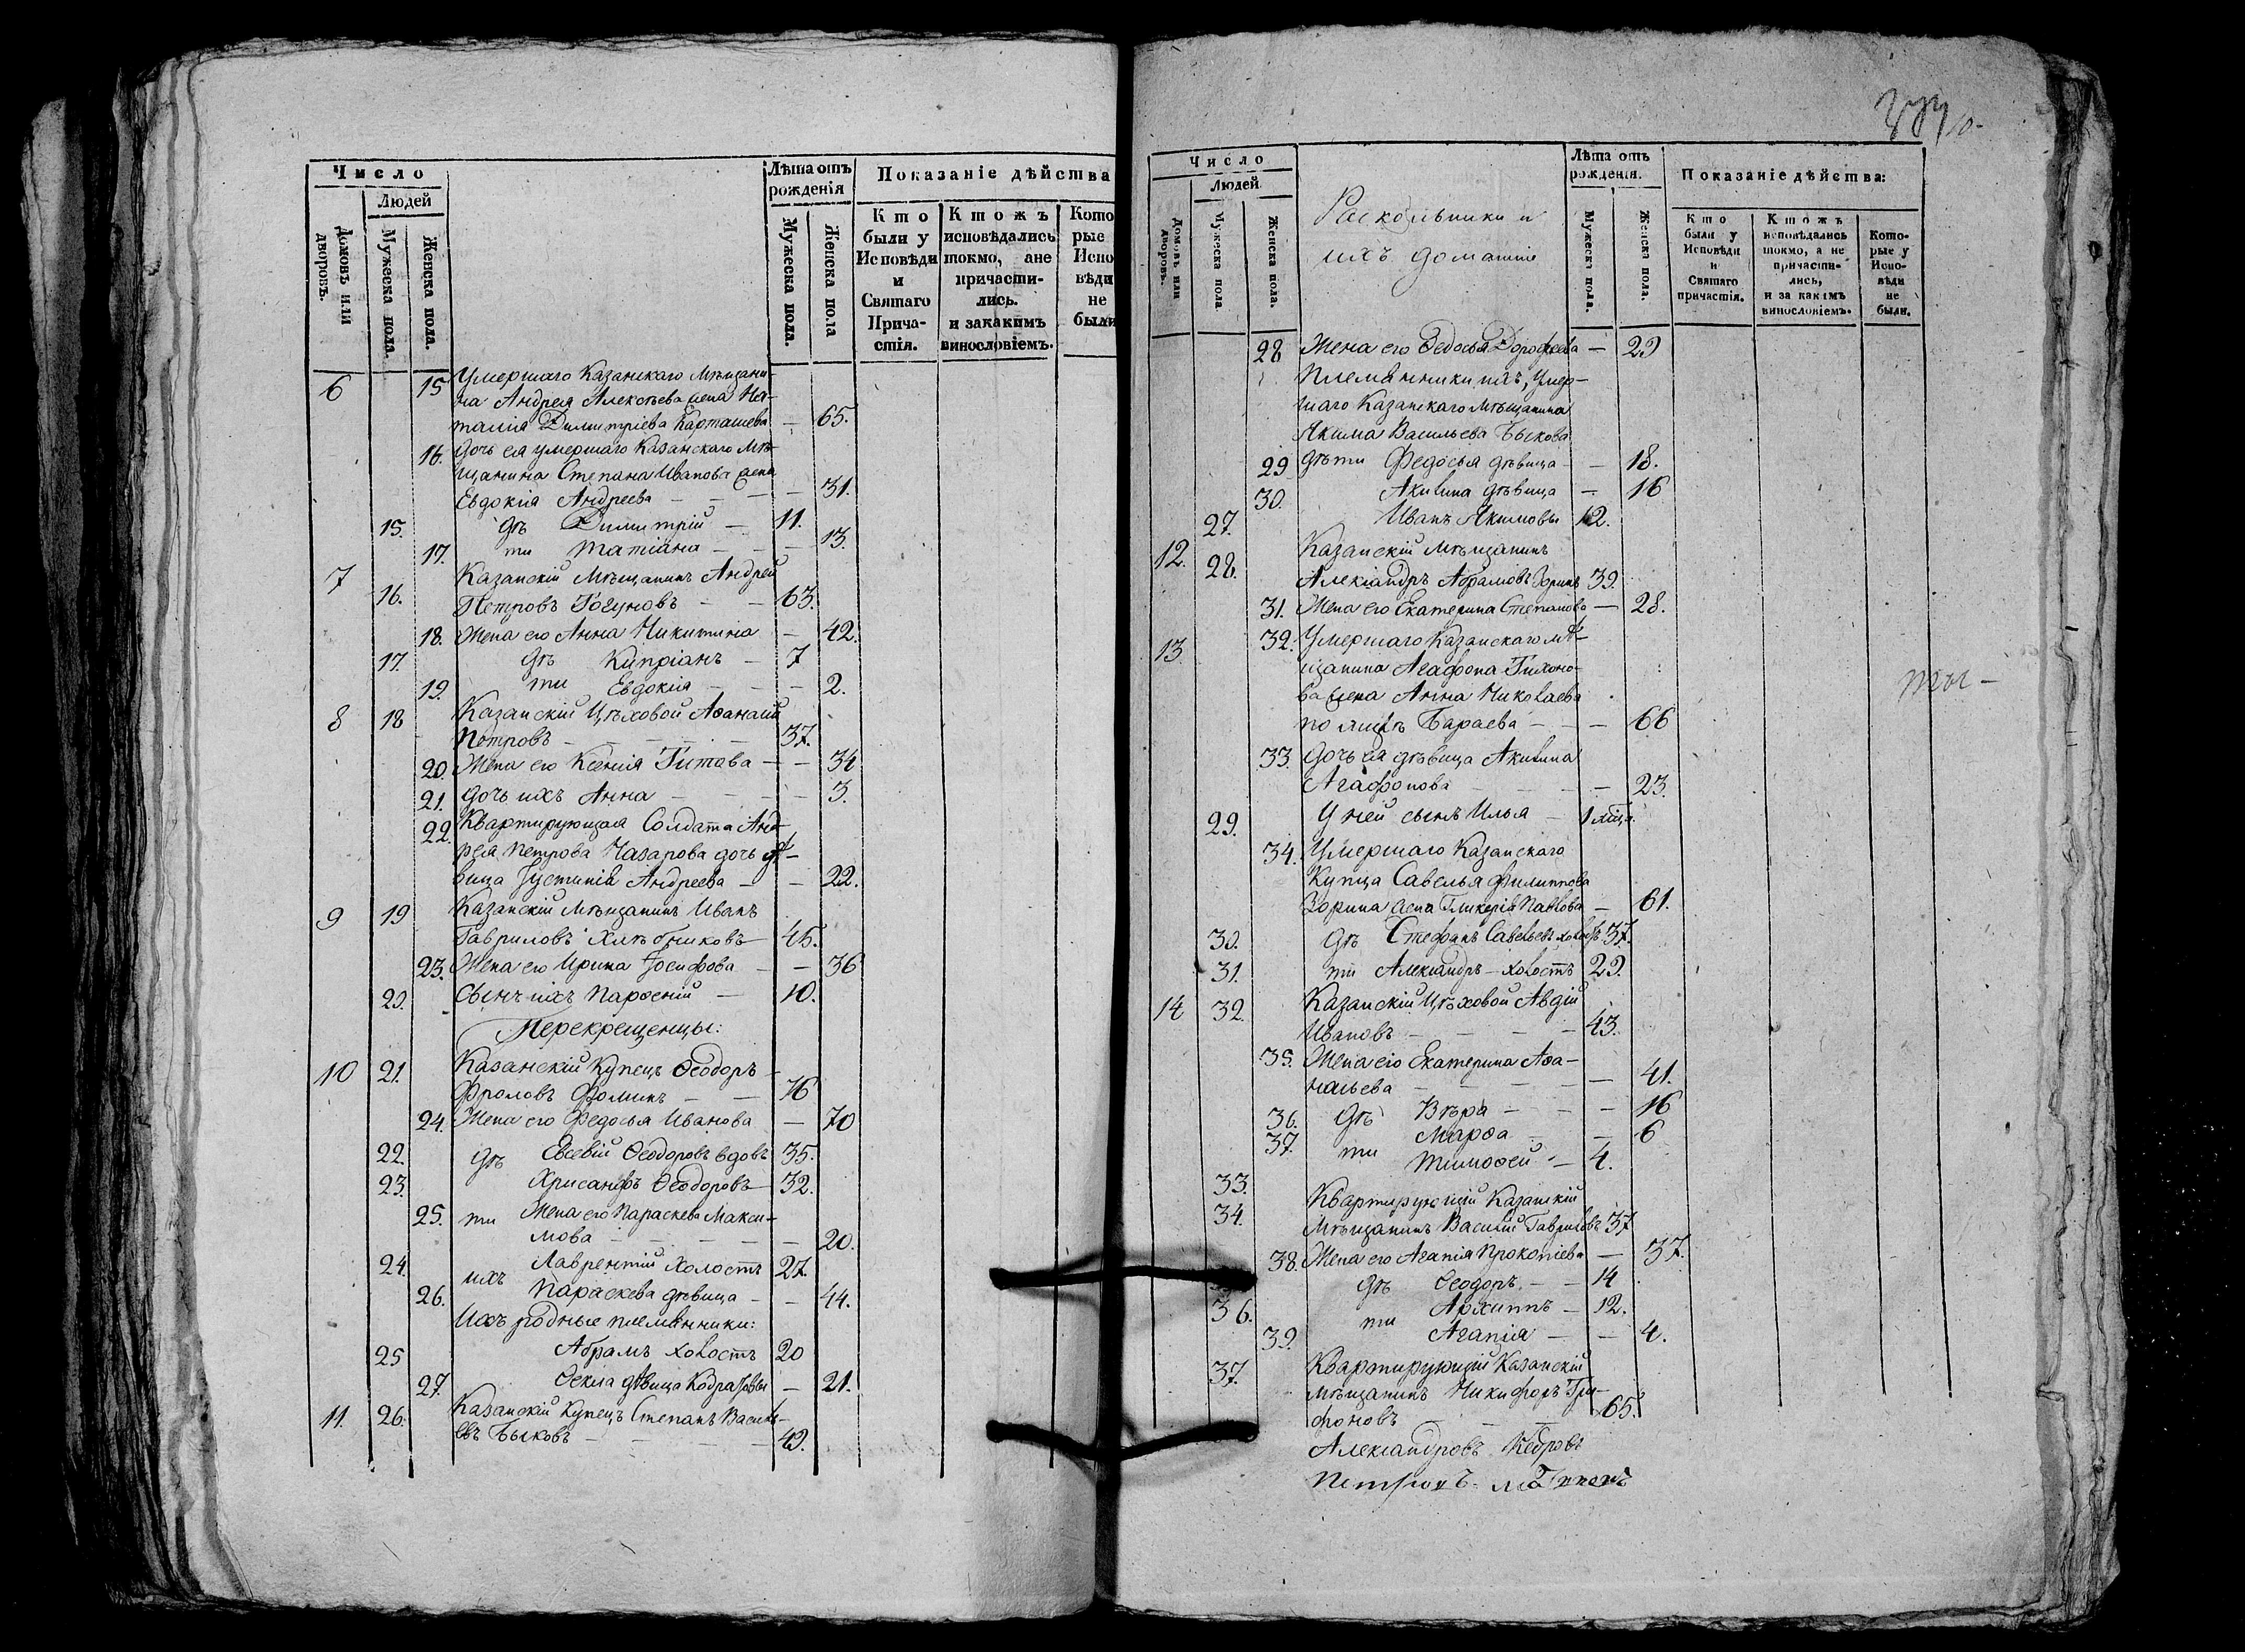 Число
Людей
Домовъ или дворовъ.
Мужеска пола.
Женска пола.
Лѣта отъ рожденія
Мужеска пола.
Женска пола
Показаніе дѣйства
Кто были у Исповѣди и Святаго Прича-стія.
Ктожъ исповѣдались токмо, ане причасти-лись. и закакимъ винословіемъ.
Кото рые Испо вѣди не были
6 15 Умершаго Казанскаго Мѣщани-
на Андрея Алексѣева жена На-
талія Димитріева Карташева — 65.
16. Дочь ея умершаго Казанскаго Мѣ-
щанина Степана Иванова жена
Евдокія Андреева — — — 31.
15. дѣ Димитрій — 11.
17. ти Татіана — — — 13.
7 16. Казанскій Мѣщанинъ Андрей
Петровъ Гогуновъ — — 63.
18. Жена его Анна Никитина — 42.
17. дѣ Купріанъ — 7
19. ти Евдокія — — — 2.
8 18 Казанскій Цѣховой Аѳанасій
Петровъ — — — — 37.
20. Жена его Ксенія Титова — — 34
21. дочь ихъ Анна — — — — 3.
22. Квартирующая Солдата Анд-
рея Петрова Назарова дочь дѣ-
вица Іустинія Андреева — — 22.
9 19 Казанскій Мѣщанинъ Иванъ
Гавриловъ Хлѣбниковъ — 45.
23. Жена его Ирина Іосифова — — 36
20. Сынъ ихъ Парѳеній — 10.
Перекрещенцы:
10 21. Казанскій Купецъ Ѳеодоръ
Фроловъ Фоминъ — — 76
24. Жена его Федосья Иванова — 70
22. дѣ Евсевій Ѳеодоровъ вдовъ 35.
23. Хрисанфъ Ѳеодоровъ — 32.
25. ти Жена его Параскева Макси-
мова — — — — — 20.
24. ихъ Лаврентій холостъ 27.
26. Параскева дѣвица — — 44.
Ихъ родные племянники:
25 Абрамъ холостъ 20
27. Ѳекла дѣвица — 21.
11. 26. Казанскій Купецъ Степанъ Василь-
евъ Быковъ — — — — 49.
Число
Людей
Домовъ или дворовъ.
Мужеска пола
Женска пола.
Раскольники и
ихъ домашніе
Лѣта отъ рожденія.
Мужеска пола.
Женска пола.
Показаніе дѣйства:
Кто были у Исповѣди и Святаго причастія.
Ктожъ исповѣдались токмо, а не причасти-лись, и за какимъ винословіемъ.
Кото-рые у Испо-вѣди не были.
28 Жена его Ѳедосья Дорофеева — 29
Племянники ихъ, умер-
шаго Казанскаго Мѣщанина
Якима Васильева Быкова
29 дѣти Федосья дѣвица — — 18.
30. Акилина дѣвица — 16
27. Иванъ Якимовы 12.
12. 28. Казанскій Мѣщанинъ
Александръ Абрамовъ Зоринъ 39.
31. Жена его Екатерина Степанова — 28.
13 32. Умершаго Казанскаго мѣ-
щанина Агафона Тихоно-
ва жена Анна Николаева
Бараева — — — 66
33. Дочь ея дѣвица Акилина
Агафонова — — — — 23.
29. У ней сынъ Илья — 1 мѣца.
34. Умершаго Казанскаго
Купца Савелья Филиппова
Зорина жена Гликерія Павлова — 61.
30. дѣ Стефанъ Савельевъ холостъ 37.
31. ти Александръ — холостъ 29.
14 32. Казанскій Цѣховой Авдій
Ивановъ — — — — 43.
35. Жена его Екатерина Аѳа-
насьева — — — — — 41.
36. дѣ Вѣра — — — 16
37. ти Марѳа — — 6
33. Тимоѳей — 4.
34. Квартирующій Казанскій
Мѣщанинъ Василій Гавриловъ 37
38. Жена его Агапія Прокопіева — 37.
дѣ Ѳеодоръ — — 14
36. ти Архиппъ — 12.
39. Агапія — — 4.
37. Квартирующій Казанскій
Мѣщанинъ Никифоръ Три-
фоновъ — — — 65.
Александровъ Кедровъ
Петровъ